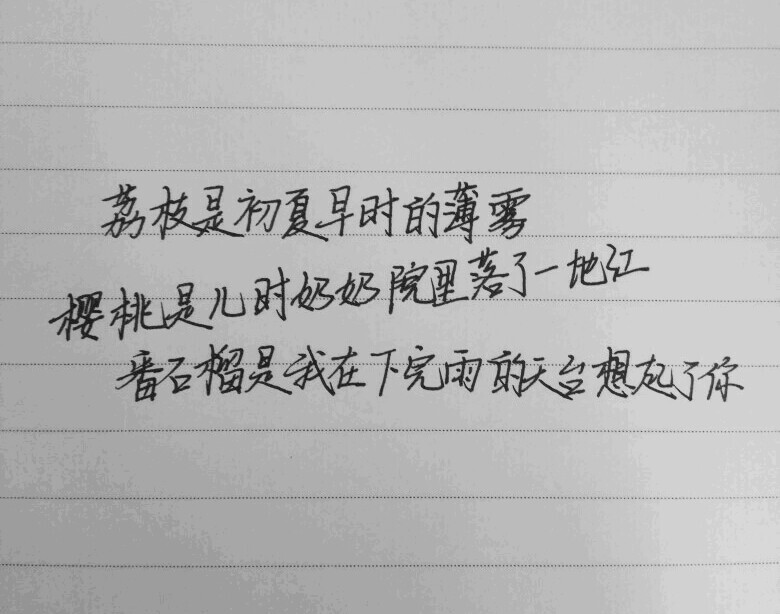 荔枝是初夏早时的薄雾
樱桃是儿时奶奶院里落了一地红
番石榴是我在下完雨的天台想起了你